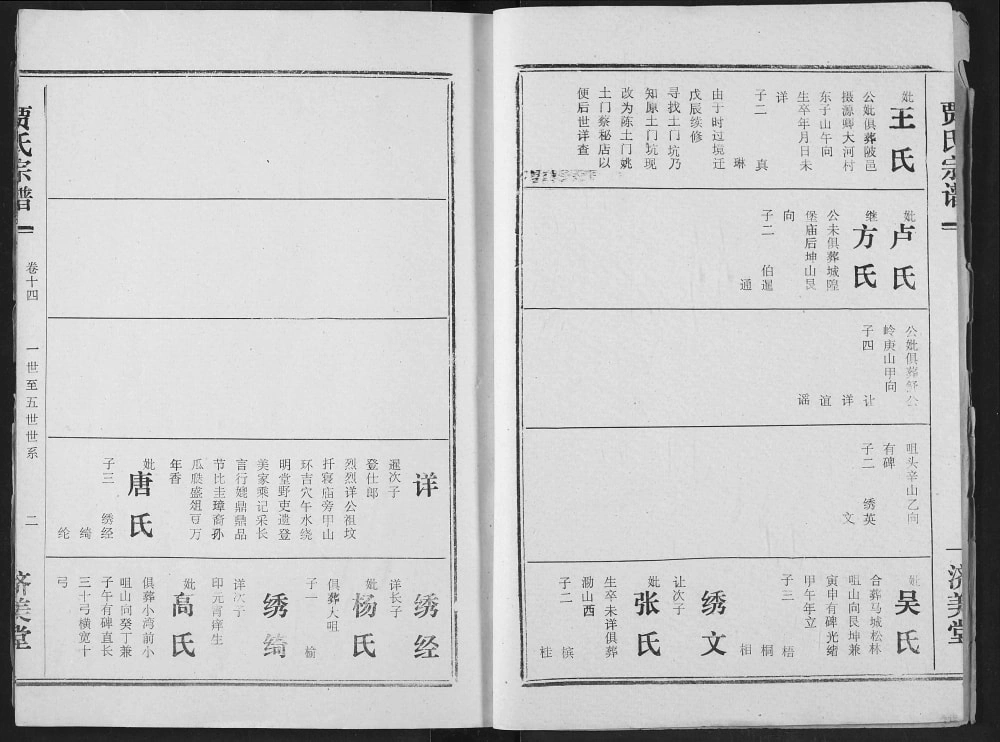 贾氏宗谱
济美堂
妣
王氏
公妣俱葬陂邑
摄源卿大河村
东子山午向
生卒年月日未
详
子二
真
琳
戊辰续修
由于时过境迁
寻找土门坑乃
知原土门坑现
改为陈土门姚
土门蔡秘店以
便后世详查
妣
卢氏
继
方氏
公未俱葬城隍
堡庙后坤山艮
向
子二
伯暹
通
公妣俱葬
岭庚山甲向
子四
让
详
谊
谣
咀头辛山乙向
有碑
子二
绣英
文
妣
吴氏
合葬马城松林
咀山向艮坤兼
寅申有碑光绪
甲午年立
子三
梧
桐
相
绣文
让次子
妣
张氏
生卒未详俱葬
渤山西
子二
槟
桂
详
暹次子
登仕郎
烈烈详公祖坟
扦寝庙旁甲山
环吉穴午水绕
明堂野吏遗登
美家乘记采长
言行媲鼎鼎品
节比圭璋裔孙
瓜瓞盛俎豆万
年香
妣
唐氏
子三
绣经
绮
纶
绣经
详长子
妣
杨氏
俱葬大咀
子一
榆
绣绮
详次子
印元宵庠生
妣
高氏
俱葬小湾前小
咀山向癸丁兼
子午有碑直长
三十弓横宽十
弓
贾氏宗谱
卷十四
一世至五世世系
二
济美堂